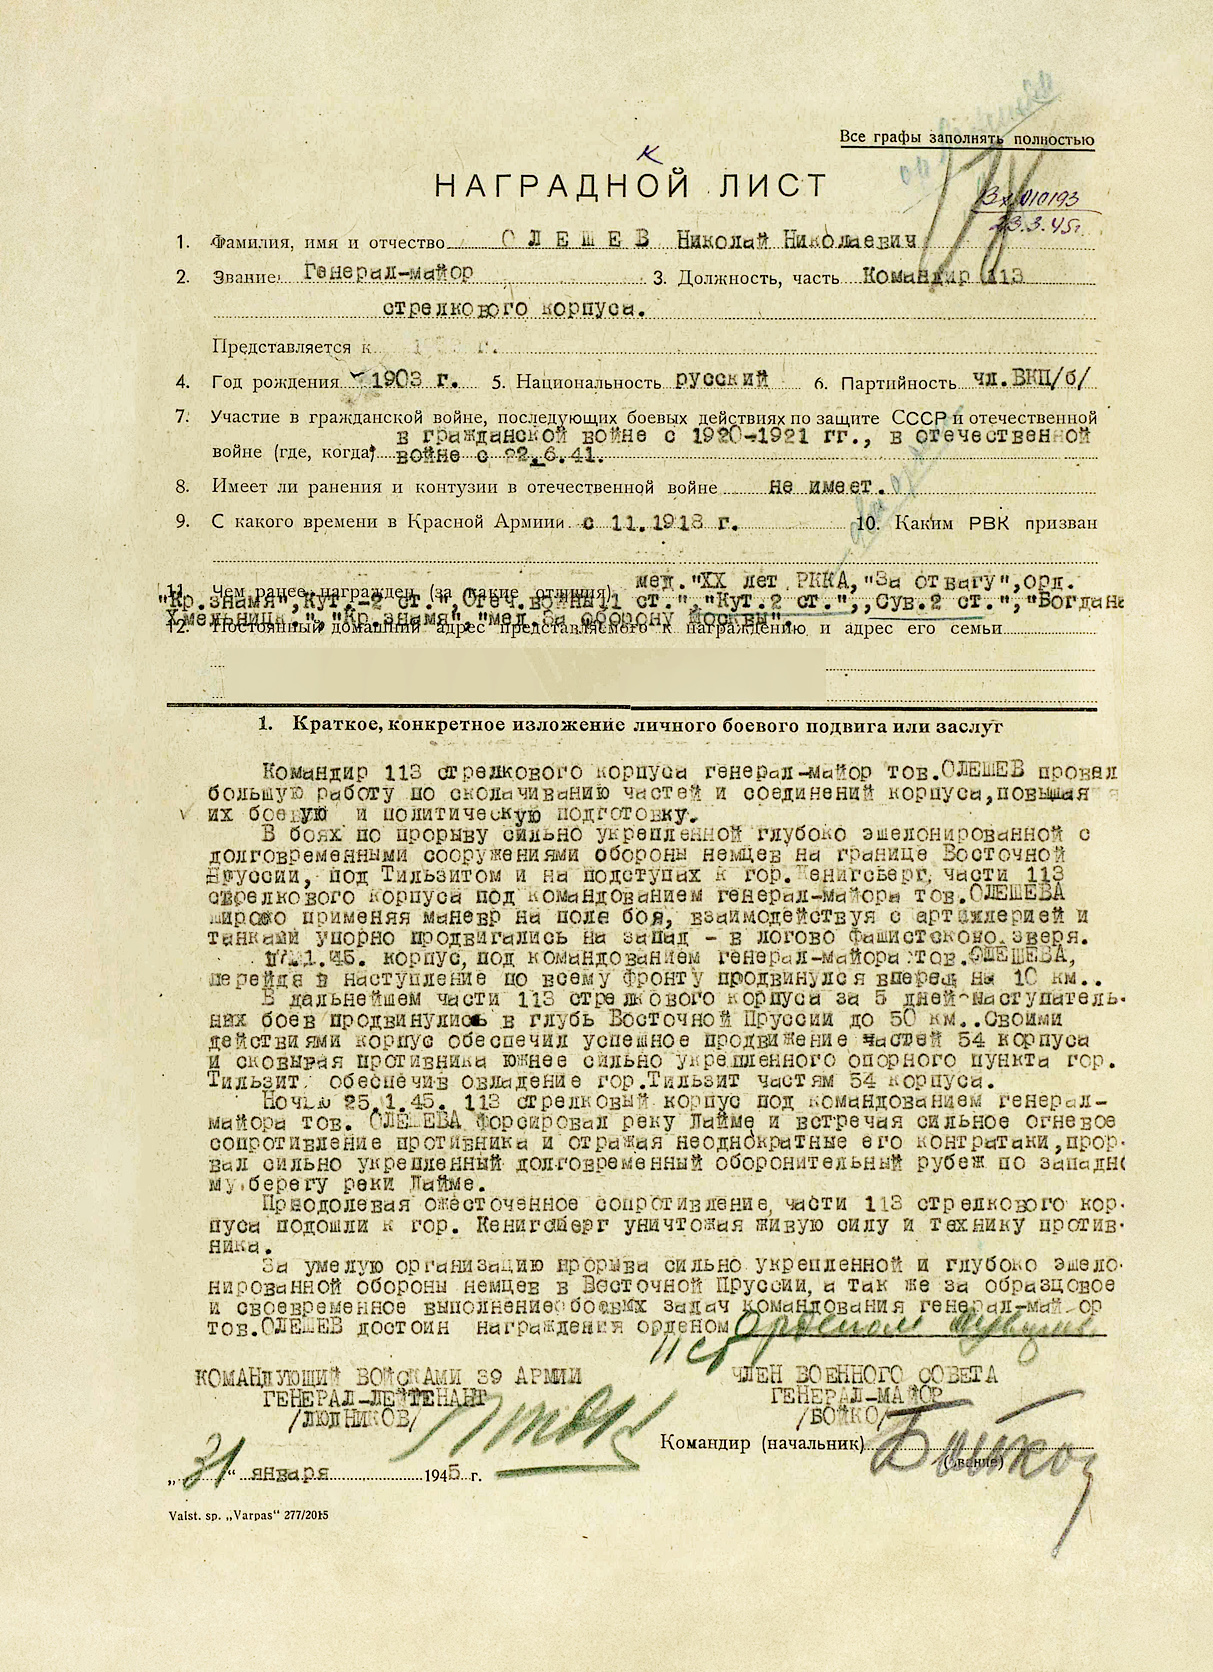 Все графы заполнять полностью
К
НАГРАДНОЙ ЛИСТ
Вх 010193
23.3.45г.
1. Фамилия, имя и отчество ОЛЕШЕВ Николай Николаевич
2. Звание Генерал-майор 3. Должность, часть Командир 113
стрелкового корпуса.
Представляется к
4. Год рождения 1903 г. 5. Национальность русский 6. Партийность чл.ВКП/б/
7. Участие в гражданской войне, последующих боевых действиях по защите СССР и отечественной
в гражданской войне с 1920-1921 гг., в отечественной
войне (где, когда) войне с 22.6.41.
8. Имеет ли ранения и контузии в отечественной войне не имеет.
9. С какого времени в Красной Армиии с 11.1918 г. 10. Каким РВК призван
мед."XX лет РККА,"За отвагу",орд.
11. Чем ранее награжден (за какие отличия)
"Кр.знамя",Кут.-2 ст.",Отеч.войны 1 ст.","Кут.2 ст.",,Сув.2 ст.","Богдана
Хмельницк.", "Кр.знамя","мед.За оборону Москвы".
12. Постоянный домашний адрес представляемого к награждению и адрес его семьи
1. Краткое, конкретное изложение личного боевого подвига или заслуг
Командир 113 стрелкового корпуса генерал-майор тов.ОЛЕШЕВ провел
большую работу по сколачиванию частей и соединений корпуса,повышая
их боевую и политическую подготовку.
В боях по прорыву сильно укрепленной глубоко эшелонированной с
долговременными сооружениями обороны немцев на границе Восточной
Пруссии, под Тильзитом и на подступах к гор.Кенигсберг, части 113
стрелкового корпуса под командованием генерал-майора тов.ОЛЕШЕВА
широко применяя маневр на поле боя, взаимодействуя с артиллерией и
танками упорно продвигались на запад - в логово фашистского зверя.
17.1.45. корпус, под командованием генерал-майора тов.ОЛЕШЕВА,
перейдя в наступление по всему фронту продвинулся вперед на 10 км..
В дальнейшем части 113 стрелкового корпуса за 5 дней наступатель-
ных боев продвинулись в глубь Восточной Пруссии до 50 км..Своими
действиями корпус обеспечил успешное продвижение частей 54 корпуса
и сковывая противника южнее сильно укрепленного опорного пункта гор.
Тильзит, обеспечив овладение гор.Тильзит частям 54 корпуса.
Ночью 25.1.45. 113 стрелковый корпус под командованием генерал-
майора тов. ОЛЕШЕВА форсировал реку Дайме и встречая сильное огневое
сопротивление противника и отражая неоднократные его контратаки,прор-
вал сильно укрепленный долговременный оборонительный рубеж по западно
му берегу реки Дайме.
Преодолевая ожесточенное сопротивление, части 113 стрелкового кор-
пуса подошли к гор. Кенигсберг уничтожая живую силу и технику против-
ника.
За умелую организацию прорыва сильно укрепленной и глубоко эшело-
нированной обороны немцев в Восточной Пруссии, а так же за образцовое
и своевременное выполнение боевых задач командования генерал-майор
тов.ОЛЕШЕВ достоин награждения орденом Орденом Кутузова
II ст
КОМАНДУЮЩИЙ ВОЙСКАМИ 39 АРМИИ ЧЛЕН ВОЕННОГО СОВЕТА
ГЕНЕРАЛ-ЛЕЙТЕНАНТ ГЕНЕРАЛ-МАЙОР
/ЛЮДНИКОВ/ /БОЙКО/
Командир (начальник) Бойко
(звание)
„31“ января 1945 г.
Valst. sp. „Varpas“ 277/2015